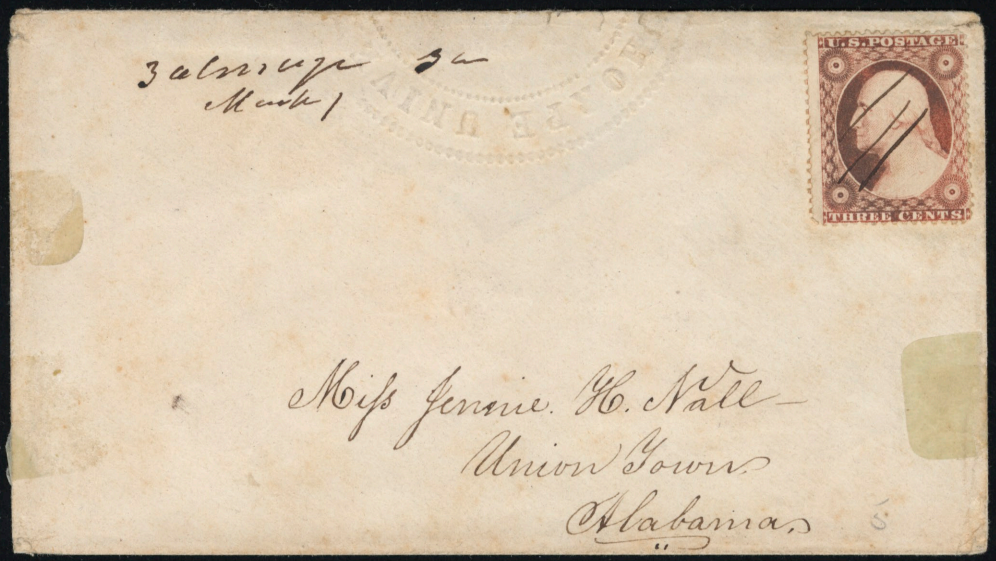 March 1
U.S. POSTAGE
THREE CENTS
Miss Jennie. H. Nall
Union Town
Alabama